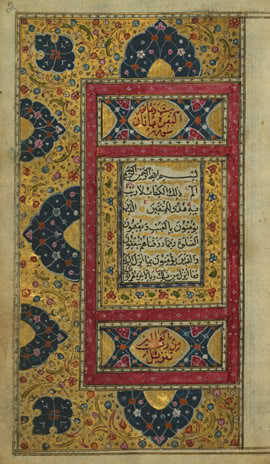 البقرة مائتان
بسم الله الرحمن الرحيم
الم ذلك الكتاب لا ريب
فيه هدى للمتقين الذين
يؤمنون بالغيب ويقيمون
الصلوة ومما رزقناهم ينفقون
والذين يؤمنون بما انزل اليك
وما انزل من قبلك وبالاخرة هم